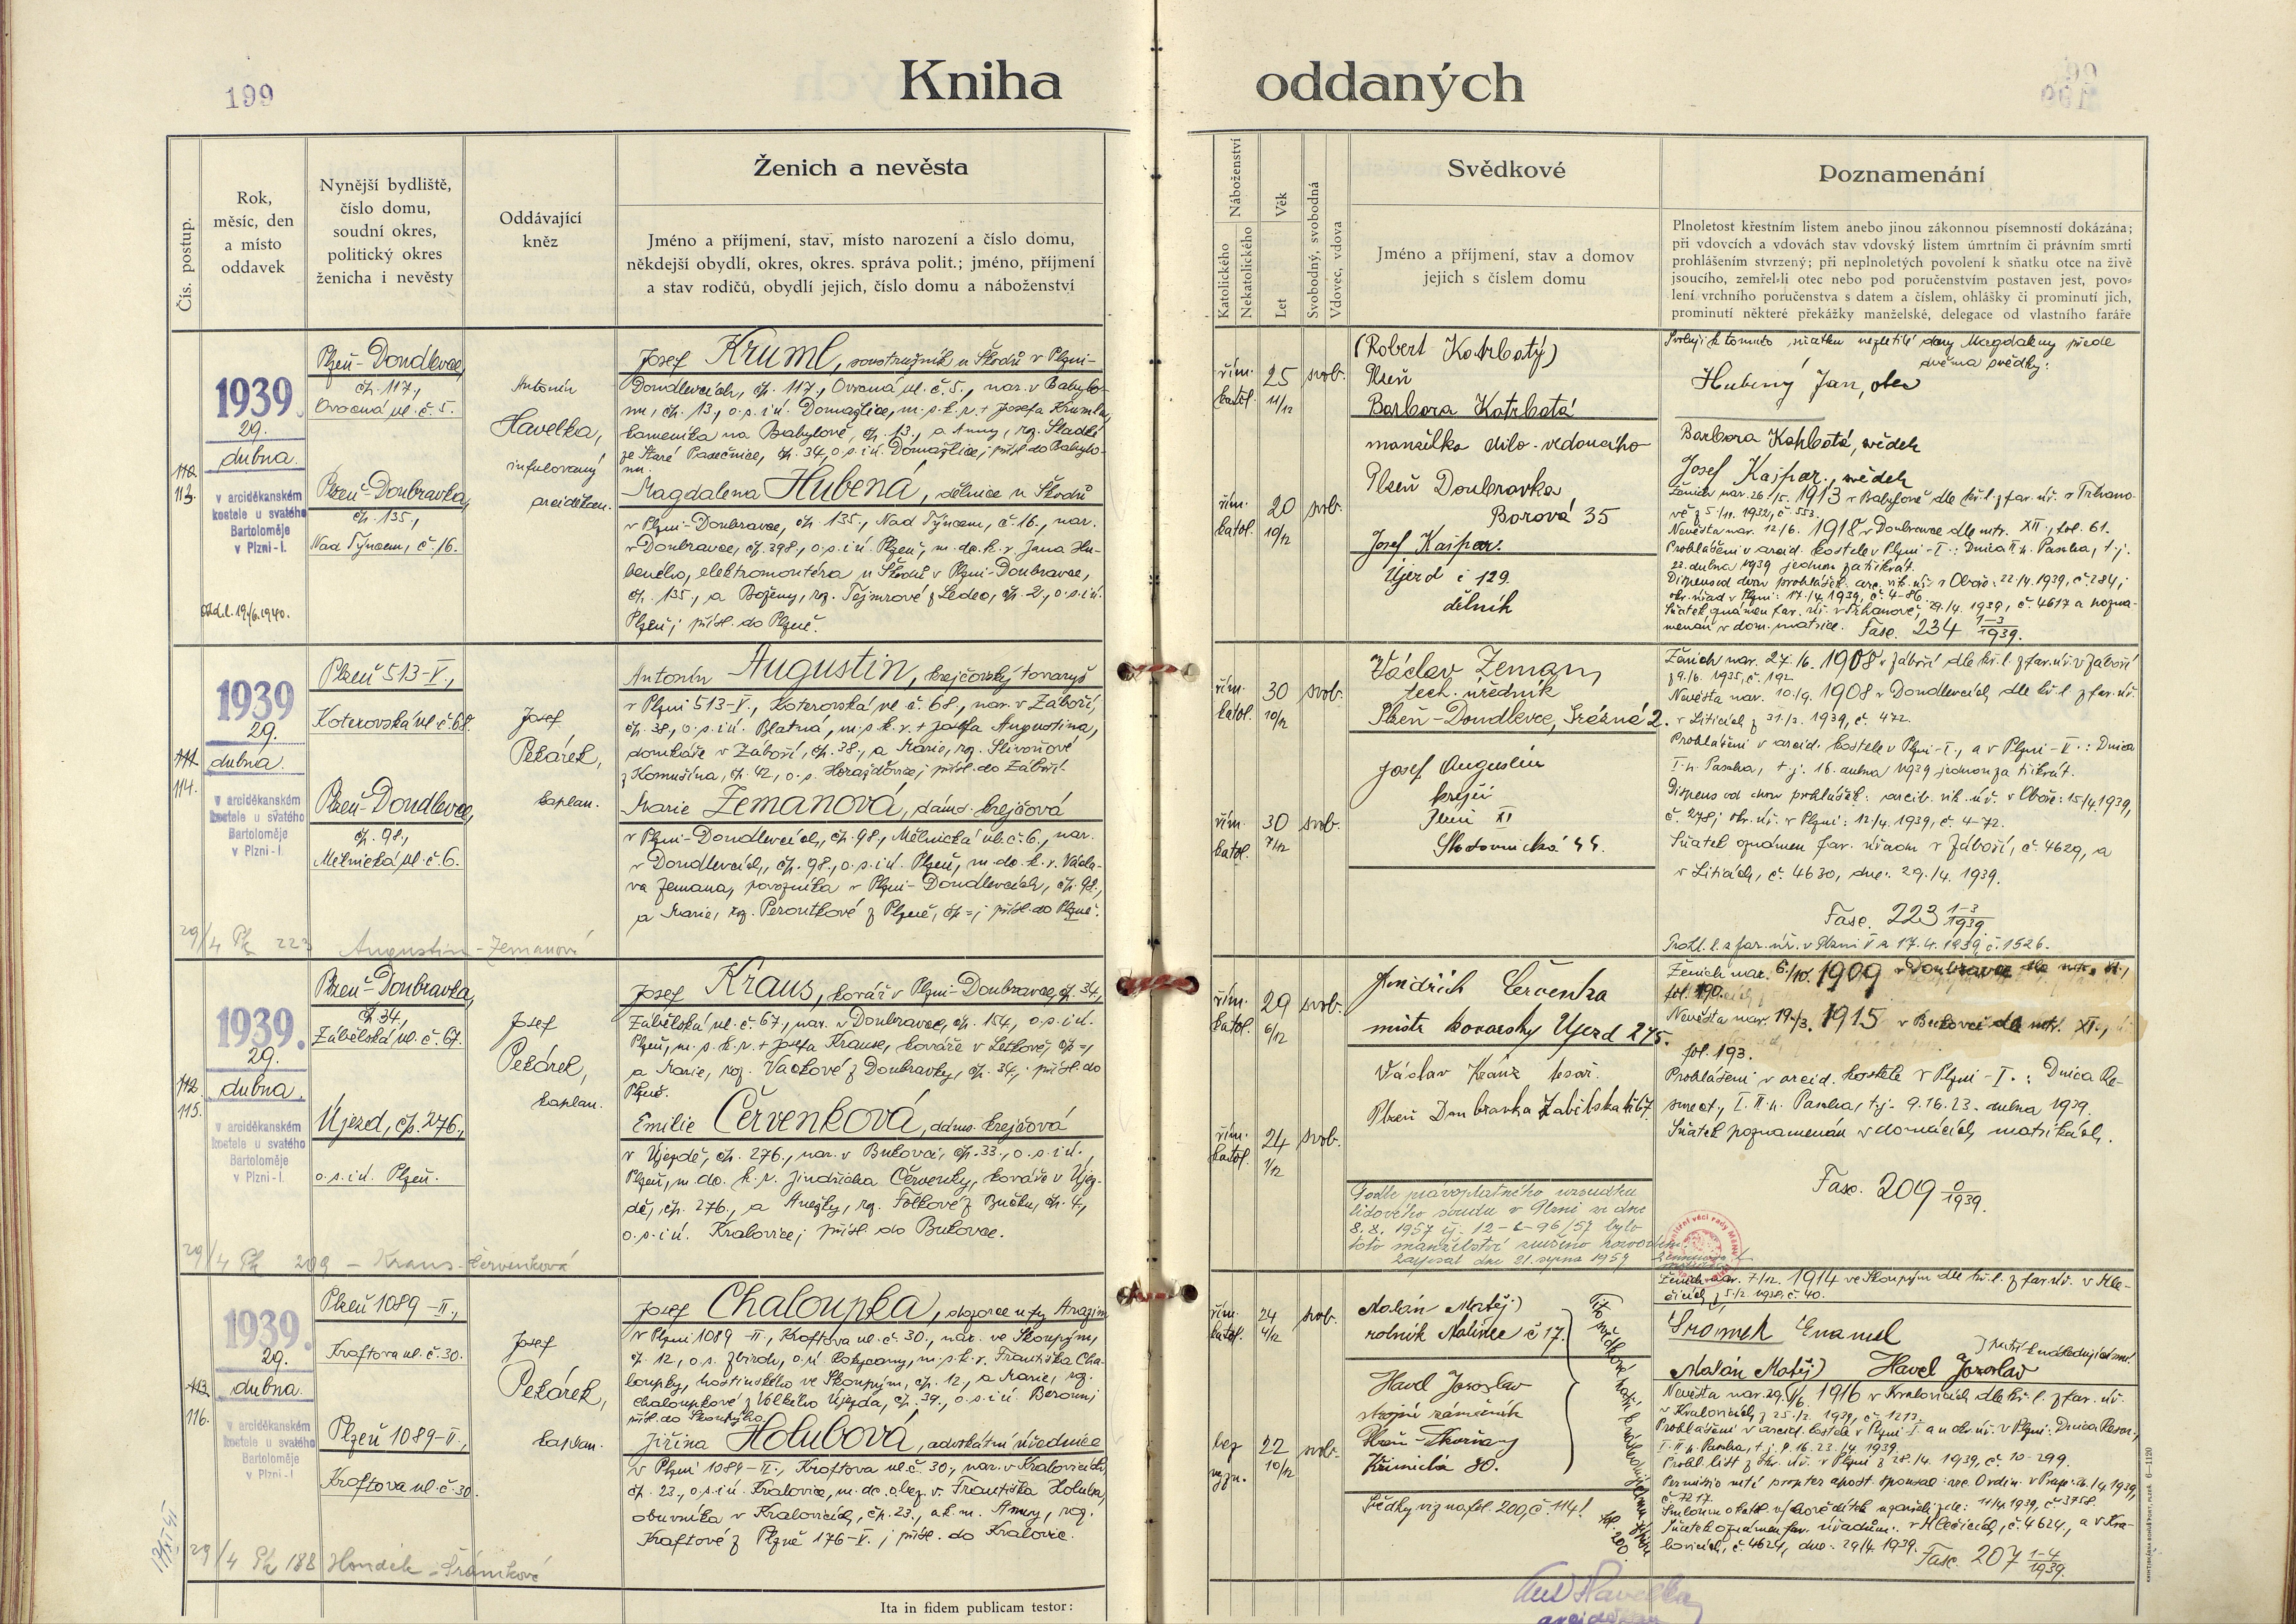 199
Kniha oddaných
Čís. postup.
Rok,
měsíc, den
a místo
oddavek
Nynější bydliště,
číslo domu,
soudní okres,
politický okres
ženicha i nevěsty
Oddávající
kněz
Ženich a nevěsta
Jméno a příjmení, stav, místo narození a číslo domu,
někdejší obydlí, okres, okres. správa polit.; jméno, příjmení
a stav rodičů, obydlí jejich, číslo domu a náboženství
Náboženství
Katolického
Nekatolického
Věk
Let
Svobodný, svobodná
Vdovec, vdova
Svědkové
Jméno a příjmení, stav a domov
jejich s číslem domu
Poznamenání
Plnoletost křestním listem anebo jinou zákonnou písemností dokázána;
při vdovcích a vdovách stav vdovský listem úmrtním či právním smrti
prohlášením stvrzený; při neplnoletých povolení k sňatku otce na živě
jsoucího, zemřel-li otec nebo pod poručenstvím postaven jest, povo-
lení vrchního poručenstva s datem a číslem, ohlášky či prominutí jich,
prominutí některé překážky manželské, delegace od vlastního faráře
113.
1939.
29.
dubna.
v arciděkanském
kostele u svatého
Bartoloměje
v Plzni-I.
Plzeň-Doudlevce,
čp. 117.,
Ovocná ul. č. 5.
Plzeň-Doubravka,
čp. 135.,
Nad Týncem, č. 16.
Antonín
Havelka,
infulovaný
arciděkan.
Josef Kruml, soustružník u Škodů v Plzni-
Doudlevcích, čp. 117., Ovocná ul. č. 5., nar. v Babylo-
nu, čp. 13., o. s. i ú. Domažlice, m. p. k. v. + Josefa Krumla,
kameníka na Babyloně, čp. 13., a Anny, roz. Sladké
ze Staré Pasečnice, čp. 34, o. s. i ú. Domažlice; přísl. do Babylo-
nu.
Magdalena Hubená, dělnice u Škodů
v Plzni-Doubravce, čp. 135., Nad Týncem, č. 16., nar.
v Doubravce, čp. 398., o. s. i ú. Plzeň, m. dc. k. v. Jana Hu-
beného, elektromontéra u Škodů v Plzni-Doubravce,
čp. 135., a Boženy, roz. Tejmrové z Ledec, čp. 2., o. s. i ú.
Plzeň; přísl. do Plzně.
řím. katol. 25 11/12 svob.
řím. katol. 20 10/12 svob.
(Robert Kotrbatý)
Plzeň
Barbora Kotrbatá
manželka dílo-vedoucího
Plzeň Doubravka
Borová 35
Josef Kašpar.
Újezd č 129.
dělník
Svoluji k tomuto sňatku nezletilé dcery Magdaleny přede
dvěma svědky:
Hubený Jan, otec
Barbora Kotrbatá, svědek
Josef Kašpar, svědek
Ženich nar. 26./5. 1913 v Babyloně dle kř. l. z far. úř. v Trhano-
vě z 5./11. 1932, č. 553.
Nevěsta nar. 12/6. 1918 v Doubravce dle mtr. XII., fol. 61.
Prohlášeni v arcid. kostele v Plzni-I.: Dnica II. p. Pascha, t. j.
22. dubna 1939 jednou za třikrát.
Fasc. 234 1-3/1939.
114.
1939
29.
dubna.
v arciděkanském
kostele u svatého
Bartoloměje
v Plzni-I.
Plzeň 513-V.,
Koterovská ul. č. 68.
Plzeň-Doudlevce,
čp. 98.,
Mělnická ul. č. 6.
Josef
Pekárek,
kaplan.
Antonín Augustin, krejčovský tovaryš
v Plzni 513-V., Koterovská ul. č. 68., nar. v Záboří,
čp. 38., o. s. i ú. Blatná, m. p. k. v. + Josefa Augustina,
domkáře v Záboří, čp. 38., a Marie, roz. Slivoňové
z Komušína, čp. 42., o. s. Horažďovice; přísl. do Záboří.
Marie Zemanová, dáms. krejčová
v Plzni-Doudlevcích, čp. 98., Mělnická ul. č. 6., nar.
v Doudlevcích, čp. 98., o. s. i ú. Plzeň, m. dc. k. v. Václa-
va Zemana, povozníka v Plzni-Doudlevcích, čp. 98.,
a Marie, roz. Peroutkové z Plzně, čp =; přísl. do Plzně.
29/4 Pk 223 Augustin - Zemanová
řím. katol. 30 10/12 svob.
řím. katol. 30 7/12 svob.
Václav Zeman,
tech. úředník
Plzeň-Doudlevce, 2.
Josef Augustin
krejčí
Plzeň XI
44.
Ženich nar. 27./6. 1908 v Záboří dle kř. l. z far. úř. v Záboří
z 9./6. 1935, č. 192
Nevěsta nar. 10./9. 1908 v Doudlevcích dle kř. l. z far. úř.
v Liticích z 31./3. 1939, č. 472.
Prohlášeni v arcid. kostele v Plzni-I., a v Plzni-V.: Dnica
I. p. Pascha, t. j. 16. dubna 1939 jednou za třikrát.
Dispens od dvou prohlášek: arcib. vik. úř. v Oboře: 15/4. 1939,
č. 278; okr. úř. v Plzni: 12/4. 1939, č. 4-72.
Sňatek oznámen far. úřadům v Záboří, č. 4629, a
v Liticích, č. 4630, dne: 29./4. 1939.
Fasc. 223 1-3/1939
Prohl. l. z far. úř. v Plzni V z 17. 4. 1939 č. 1526.
115.
1939.
29.
dubna.
v arciděkanském
kostele u svatého
Bartoloměje
v Plzni-I.
Plzeň-Doubravka,
čp. 34.,
Zábělská ul. č. 67.
Újezd, čp. 276.,
o. s. i ú. Plzeň.
Josef
Pekárek,
kaplan.
Josef Kraus, kovář v Plzni-Doubravce, čp. 34.,
Zábělská ul. č. 67., nar. v Doubravce, čp. 154., o. s. i ú.
Plzeň, m. p. k. v. + Josefa Krause, kováře v Letkově, čp =,
a Marie, roz. Vackové z Doubravky, čp. 34.; přísl. do
Plzně.
Emilie Červenková, dáms. krejčová
v Újezdě, čp. 276., nar. v Bukovci, čp. 33., o. s. i ú.
Plzeň, m. dc. k. v. Jindřicha Červenky, kováře v Újez-
dě, čp. 276., a Anežky, roz. Foltkové z Bučku, čp. 4.,
o. s. i ú. Kralovice; přísl. do Bukovce.
29/4 Pk 209 - Kraus - Červenková
řím. katol. 29 6/12 svob.
řím. katol. 24 1/12 svob.
Jindřich Červenka
mistr kovářský Újezd 275.
Václav tesař.
Plzeň Doubravka Zábělská č 67
Podle právoplatného rozsudku
lidového soudu v Plzni ze dne
8. 8. 1957 čj. 12-C-96/57 bylo
toto manželství zrušeno rozvodem.
Zapsal dne 21. srpna 1957
Ženich nar. 6./10. 1909 v Doubravce dle mtr. XI.,
fol. 190.
Nevěsta nar. 19./3. 1915 v Bukovci dle mtr. XI.,
fol. 193.
Prohlášeni v arcid. kostele v Plzni-I.: Dnica Re-
surect., I. II. p. Pascha, t. j. 9. 16. 23. dubna 1939.
Sňatek poznamenán v domácích matrikách.
Fasc. 209 0/1939.
116.
1939.
29.
dubna.
v arciděkanském
kostele u svatého
Bartoloměje
v Plzni-I.
Plzeň 1089-II.,
Kroftova ul. č. 30.
Plzeň 1089-II.,
Kroftova ul. č. 30.
Josef
Pekárek,
kaplan.
Josef Chaloupka, obzorce u fy
v Plzni 1089-II., Kroftova ul. č. 30., nar. ve Skoupým,
čp. 12., o. s. Zbiroh, o. ú. Rokycany, m. p. k. v. Františka Cha-
loupky, hostinského ve Skoupým, čp. 12., a Marie, roz.
Chaloupkové z Velkého Újezda, čp. 39., o. s. i ú. Beroun;
přísl. do Skoupýho.
Jiřina Holubová, advokátní úřednice
v Plzni 1089-II., Kroftova ul. č. 30., nar. v Kralovicích,
čp. 23., o. s. i ú. Kralovice, m. dc. bez v. Františka Holuba,
obuvníka v Kralovicích, čp. 23., a k. m. Anny, roz.
Kraftové z Plzně 176-V.; přísl. do Kralovic.
29/4 Pk 188 Hondík - Šrámková
řím. katol. 24 4/12 svob.
bez vyzn. 22 10/12 svob.
Malán Matěj
rolník Malinec č 17.
Havel Jaroslav
strojní zámečník
Plzeň-Skvrňany
Křimická 80.
Svědky viz na fol. 200, č. 114!
Ženich nar. 7./12. 1914 ve Skoupým dle kř. l. z far. úř. v Hle-
čicích z 5./2. 1939, č. 40.
Šrámek Emanuel
Malán Matěj a Havel Jaroslav
Nevěsta nar. 29./6. 1916 v Kralovicích dle kř. l. z far. úř.
v Kralovicích z 25./3. 1939, č. 1213.
I. II. p. Pascha, t. j. 9. 16. 23. /4. 1939.
Prohl. list z okr. úř. v Plzni z 28./4. 1939, č. 10-299.
Fasc. 207 1-4/1939.
Ita in fidem publicam testor:
Ant. Havelka
arciděkan